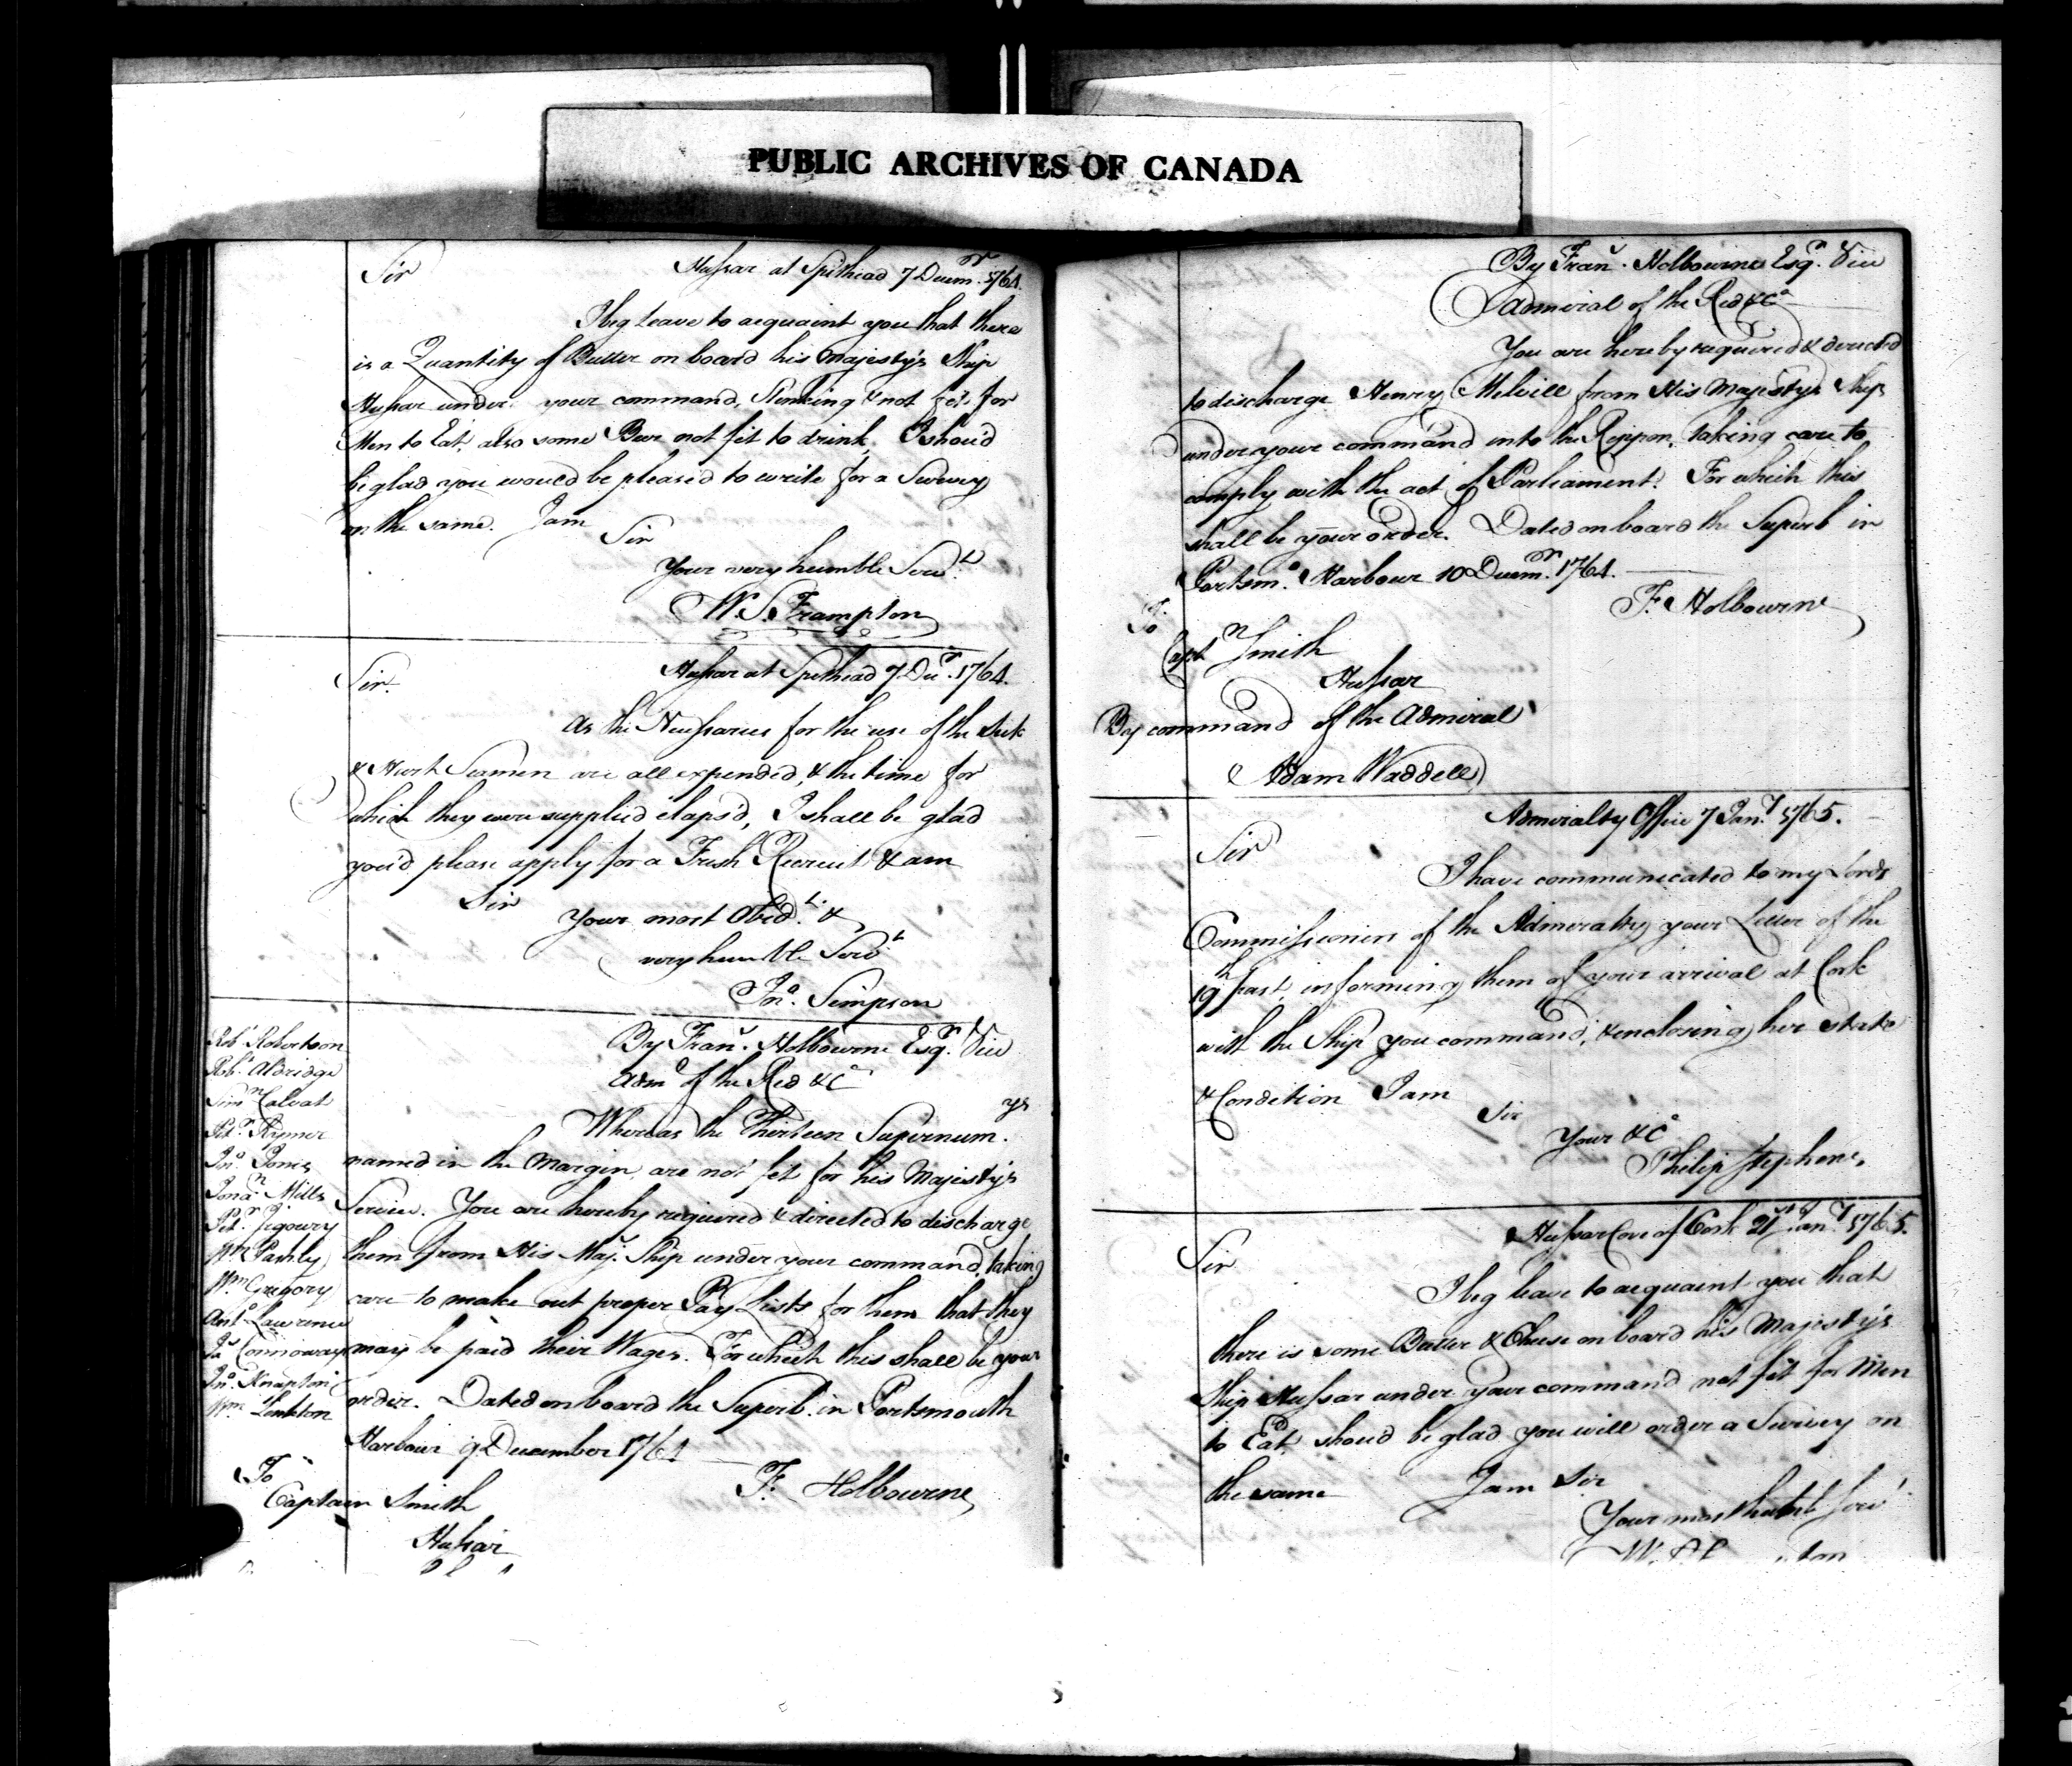 PUBLIC ARCHIVES OF CANADA
Sir
Hussar at Spithead 7 Decemr. 1764.
I beg leave to acquaint you that there
is a Quantity of Butter on board his Majesty's Ship
Hussar under your command, Stinking & not fit for
Men to Eat, also some Beer not fit to drink, I shou'd
be glad you would be pleased to write for a Survey
on the same. I am
Sir
Your very humble Servt.
W. S. Frampton
Hussar at Spithead 7 Decr. 1764.
Sir.
As the Necessaries for the use of the Sick
& Hurt Seamen are all expended, & the time for
which they were supplied elaps'd, I shall be glad
you'd please apply for a Fresh Recruit & am
Sir
Your most Obedt. &
very humble Servt
Jno. Simpson
By Frans. Holbourne Esqr. Vice
Adml of the Red &ca
Whereas the Thirteen Supernumys.
named in the Margin are not fit for his Majesty's
Service. You are hereby required & directed to discharge
them from His Maj. Ship under your command, taking
care to make out proper Pay Lists for them that they
may be paid their Wages. For which this shall be your
order. Dated on board the Superb in Portsmouth
Harbour 9 December 1764
F. Holbourne
Robt Robertson
Robt. Aldridge
Simn Calvat
Petr. Rymer
Jno. Jones
Jonan Mills
Petr.
Wm Pashly
Wm Gregory
Anto Lawrence
Jas Connoway
Jno. Knapton
Wm
To
Captain Smith
Hussar
By Frans. Holbourne Esqr. Vice
Admiral of the Red &ca
You are hereby required & directed
to discharge Henry Melvill from His Majesty's Ship
under your command into the Rippon, taking care to
comply with the act of Parliament. For which this
shall be your order. Dated on board the Superb in
Portsmo. Harbour 10 Decemr. 1764.
F. Holbourne
To
Captn Smith
Hussar
By command of the Admiral
Adam Waddell
Admiralty Office 7 Jany. 1765.
Sir
I have communicated to my Lords
Commissioners of the Admiralty your Letter of the
19th past, informing them of your arrival at Cork
with the Ship you command, & enclosing her state
& Condition I am
Sir
Your &ca
Philip Stephens.
Hussar Cove of Cork 21st Jany 1765.
Sir
I beg leave to acquaint you that
there is some Butter & Cheese on board his Majesty's
Ship Hussar under your command not fit for Men
to Eat, shoud be glad you will order a Survey on
the same I am Sir
Your most humbl Servt